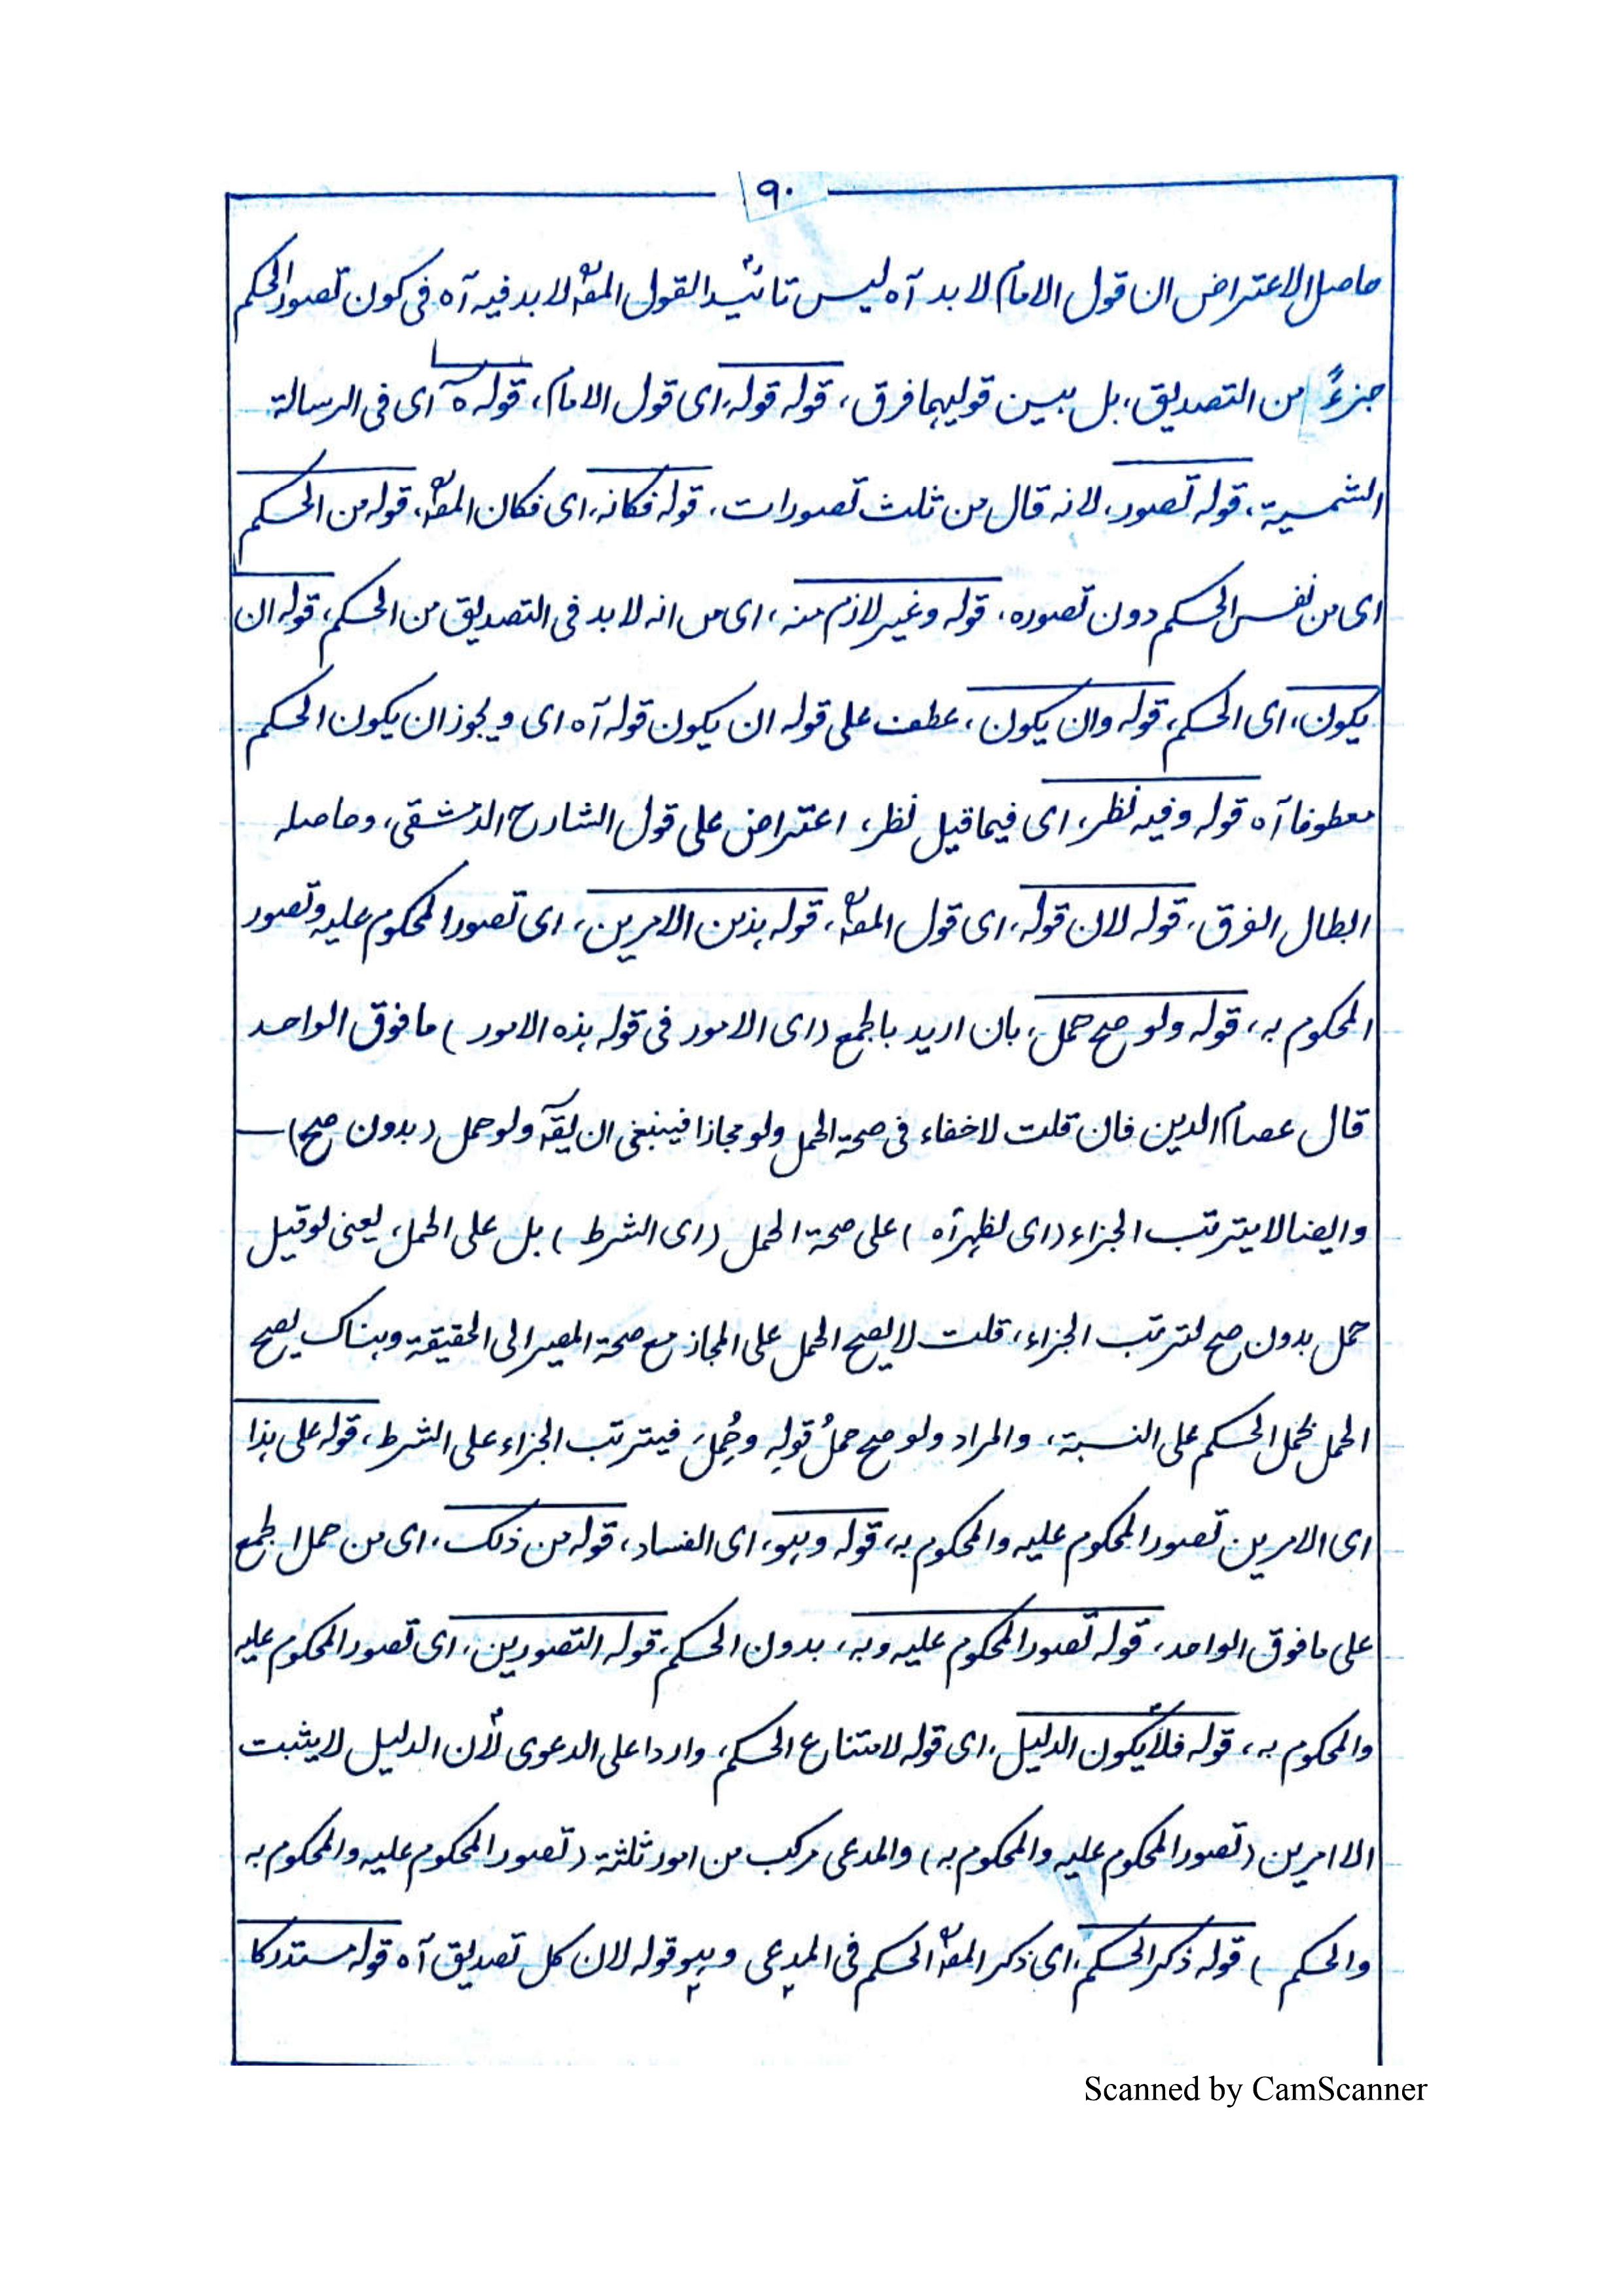 ٩٠
حاصل الاعتراض ان قول الامام لا بد آه ليس تائيدا لقول المصؒ لا بد فيه آه فى كون تصور الحكم
جزءً من التصديق، بل بين قوليهما فرق، قوله قوله، اى قول الامام، قوله ه اى فى الرسالة
الشمسية، قوله تصور، لانه قال من ثلث تصورات، قوله فكانه، اى فكان المصؒ، قوله من الحكم
اى من نفس الحكم دون تصوره، قوله وغير لازم منه، اى من انه لا بد فى التصديق من الحكم، قوله ان
يكون، اى الحكم، قوله وان يكون، عطف على قوله ان يكون قوله آه اى ويجوز ان يكون الحكم
معطوفا آه قوله وفيه نظر، اى فيما قيل نظر، اعتراض على قول الشارح الدمشقى، وحاصله
ابطال الفرق، قوله لان قوله، اى قول المصؒ، قوله بذين الامرين، اى تصور المحكوم عليه وتصور
المحكوم به، قوله ولو صح حمل، بان اريد بالجمع (اى الامور فى قوله هذه الامور) ما فوق الواحد
قال عصام الدين فان قلت لا خفاء فى صحة الحمل ولو مجازا فينبغى ان يقآ ولو حمل (بدون صح)
وايضا لا يترتب الجزاء (اى لظهر آه) على صحة الحمل (اى الشرط) بل على الحمل، يعنى لو قيل
حمل بدون صح لترتب الجزاء، قلت لا يصح الحمل على المجاز مع صحة المصير الى الحقيقة وهناك يصح
الحمل بحمل الحكم على النسبة، والمراد ولو صح حملُ قولِه وحُمِلَ فيترتب الجزاء على الشرط، قوله على هذا
اى الامرين تصور المحكوم عليه والمحكوم به، قوله وهو، اى الفساد، قوله من ذلك، اى من حمل الجمع
على ما فوق الواحد، قوله تصور المحكوم عليه وبه، بدون الحكم، قوله التصورين، اى تصور المحكوم عليه
والمحكوم به، قوله فلا يكون الدليل، اى قوله لامتناع الحكم، واردا على الدعوى لأن الدليل لا يثبت
الا امرين (تصور المحكوم عليه والمحكوم به) والمدعى مركب من امور ثلثة (تصور المحكوم عليه والمحكوم به
والحكم) قوله ذكر الحكم، اى ذكر المصؒ الحكم فى المدعى وهو قوله لان كل تصديق آه قوله مستدركا
Scanned by CamScanner